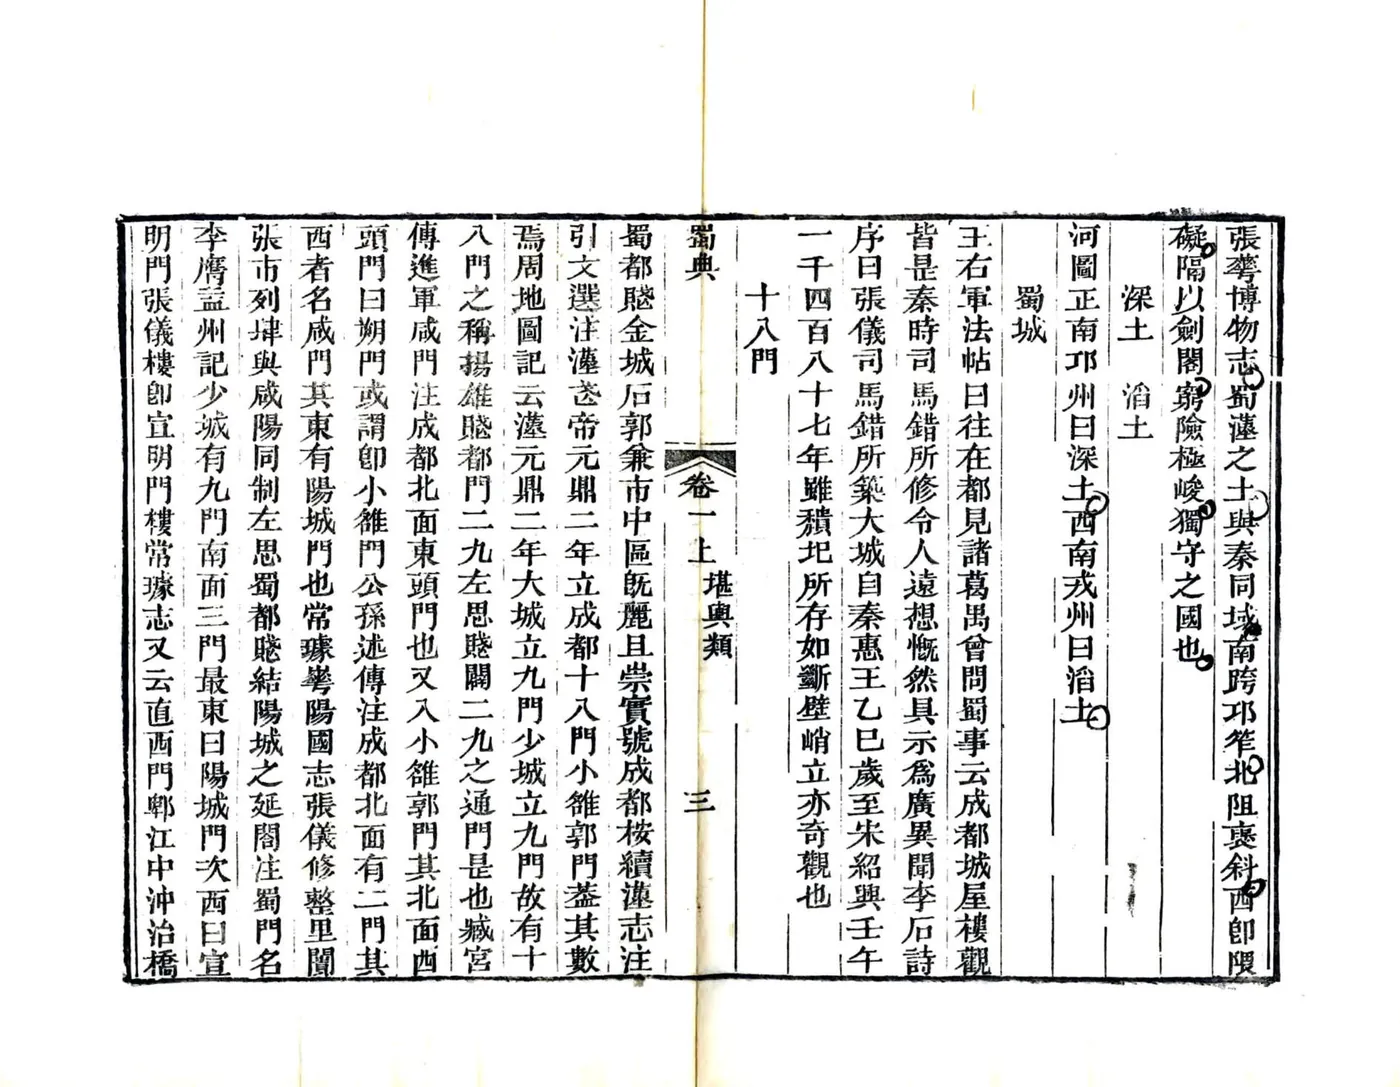 張華博物志蜀漢之土與秦同域南跨邛笮北阻褒斜西卽隈
礙隔以劍閣窮險極峻獨守之國也
深土　滔土
河圖正南邛州曰深土西南戎州曰滔土
蜀城
王右軍法帖曰往在都見諸葛禺曾問蜀事云成都城屋樓觀
皆是秦時司馬錯所修令人遠想慨然具示爲廣異聞李石詩
序曰張儀司馬錯所築大城自秦惠王乙巳歲至宋紹興壬午
一千四百八十七年雖穨圯所存如斷壁峭立亦奇觀也
十八門
蜀典　卷一上　堪輿類　三
蜀都賦金城石郭兼市中區旣麗且崇實號成都桉續漢志注
引文選注漢武帝元鼎二年立成都十八門小雒郭門葢其數
焉周地圖記云漢元鼎二年大城立九門少城立九門故有十
八門之稱揚雄賦都門二九左思賦闢二九之通門是也臧宮
傳進軍咸門注成都北面東頭門也又入小雒郭門其北面西
頭門曰朔門或謂卽小雒門公孫述傳注成都北面有二門其
西者名咸門其東有陽城門也常璩華陽國志張儀修整里闠
張市列肆與咸陽同制左思蜀都賦結陽城之延閣注蜀門名
李膺益州記少城有九門南面三門最東曰陽城門次西曰宣
明門張儀樓卽宣明門樓常璩志又云直西門郫江中沖治橋